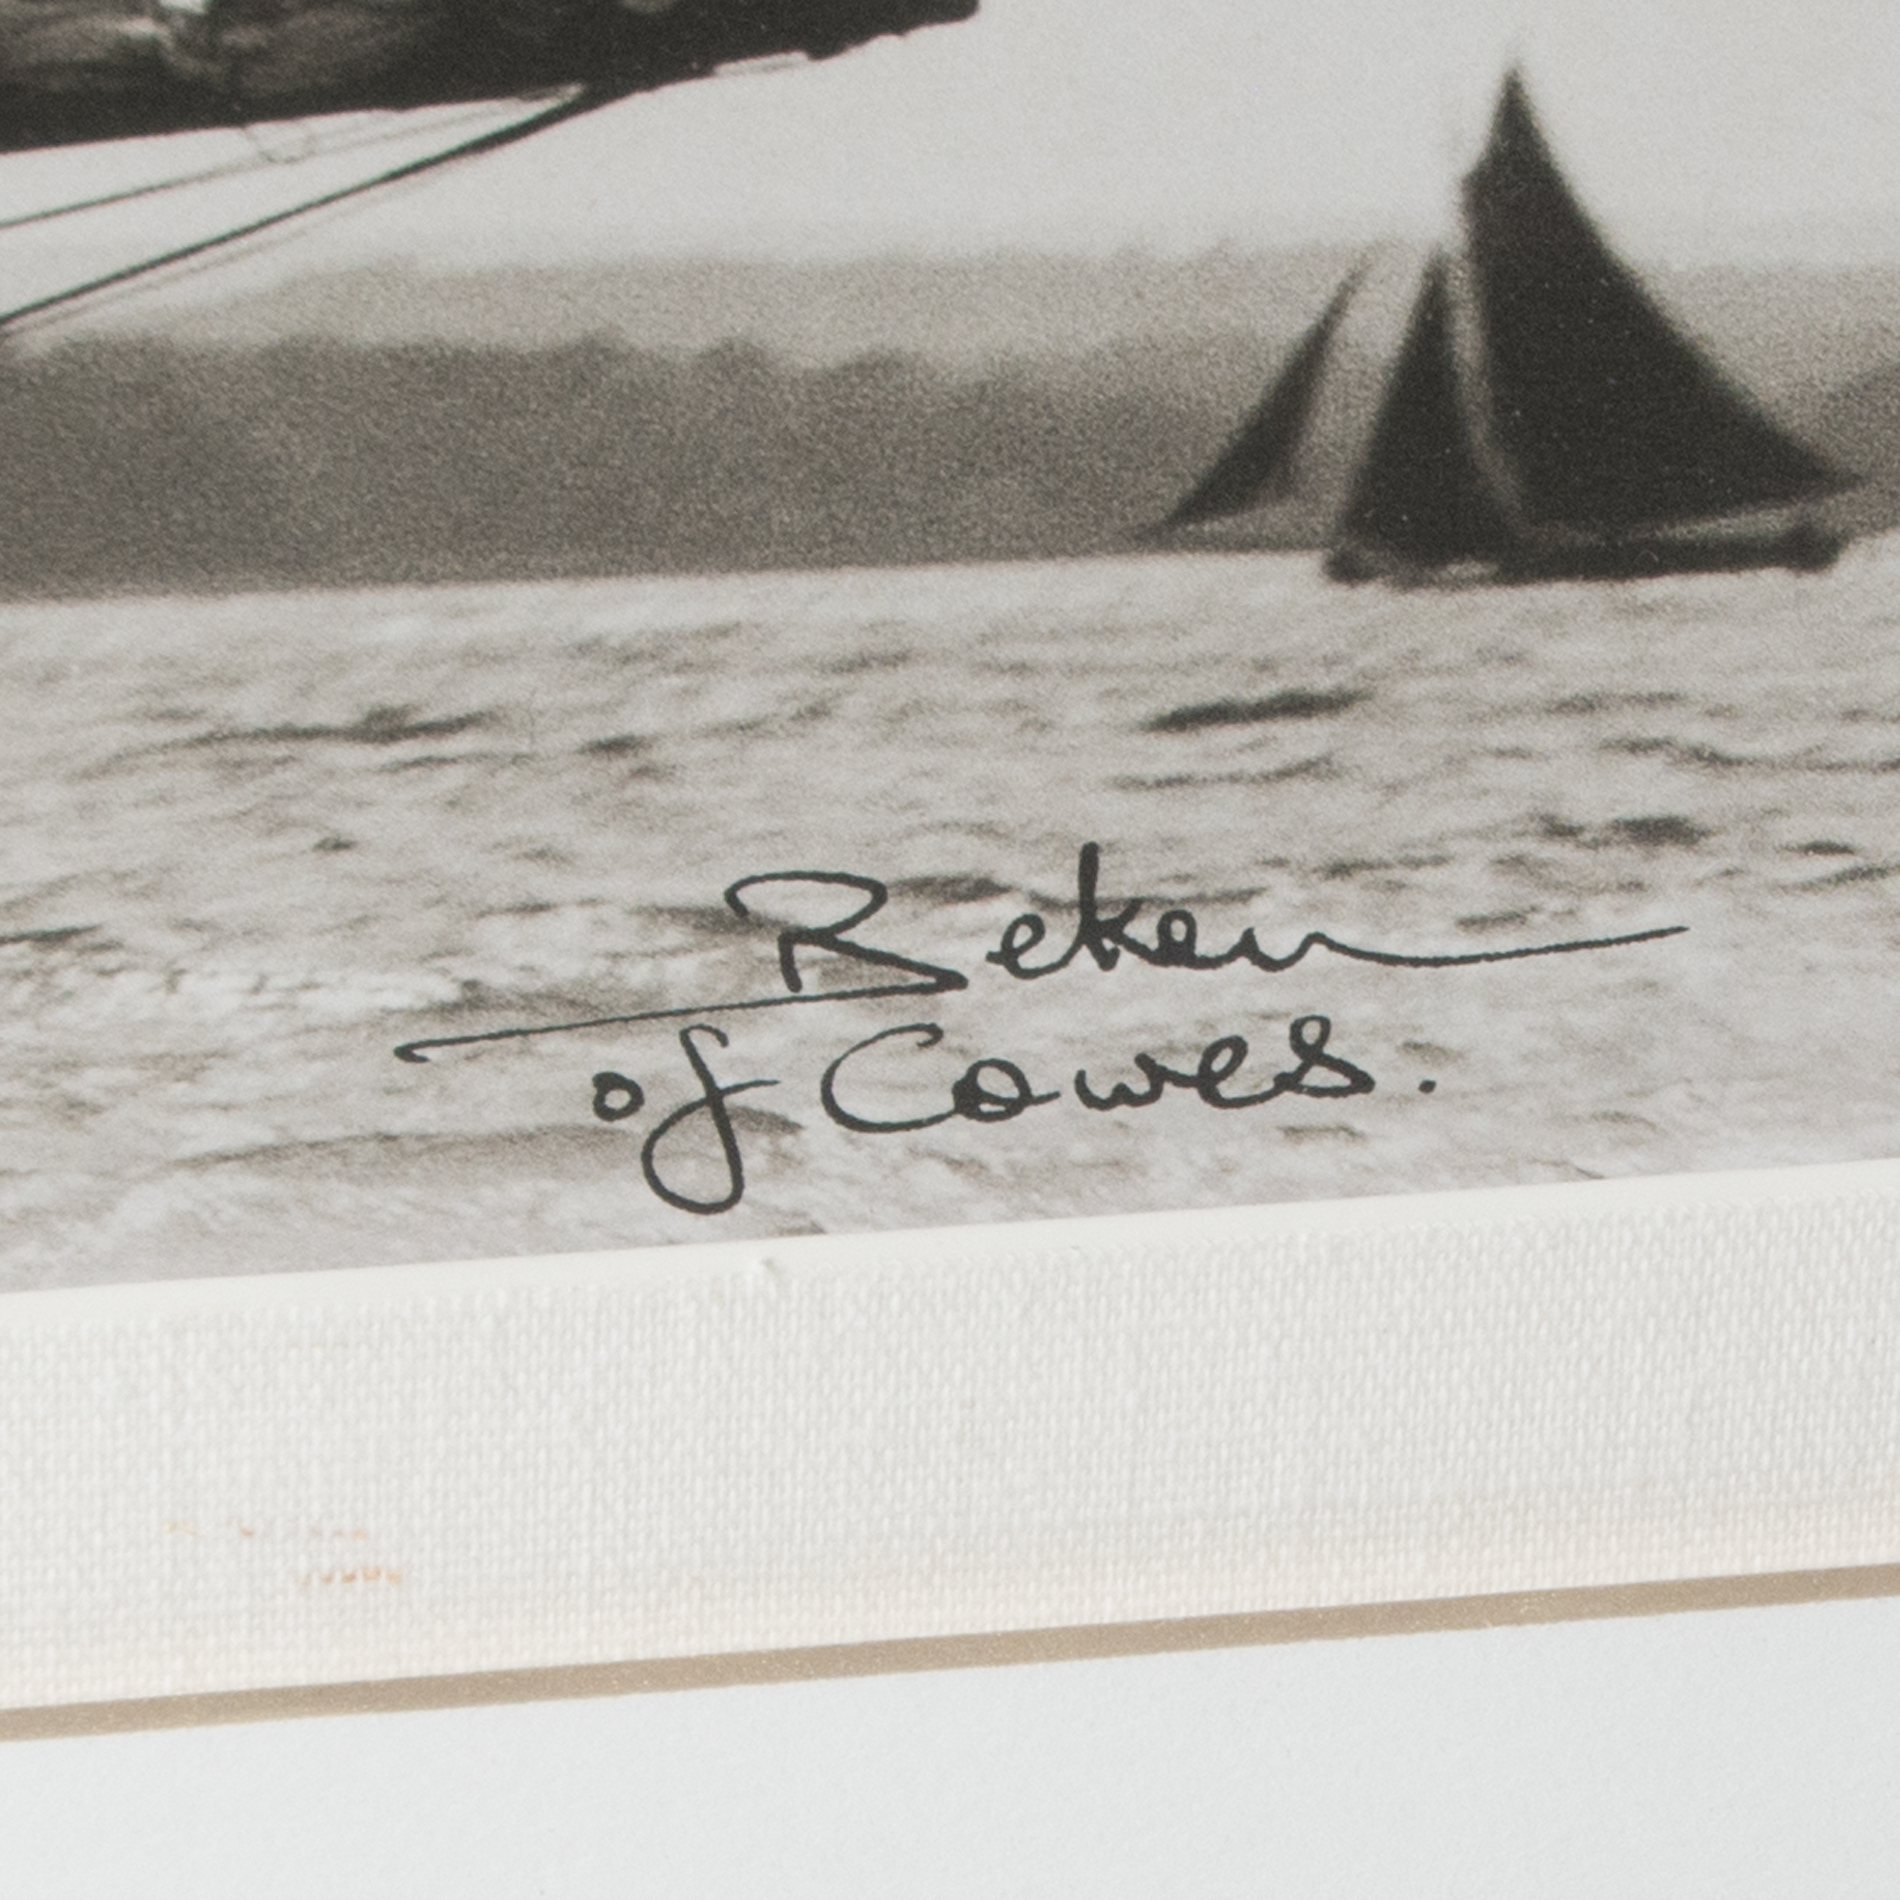 Beken
of Cowes.